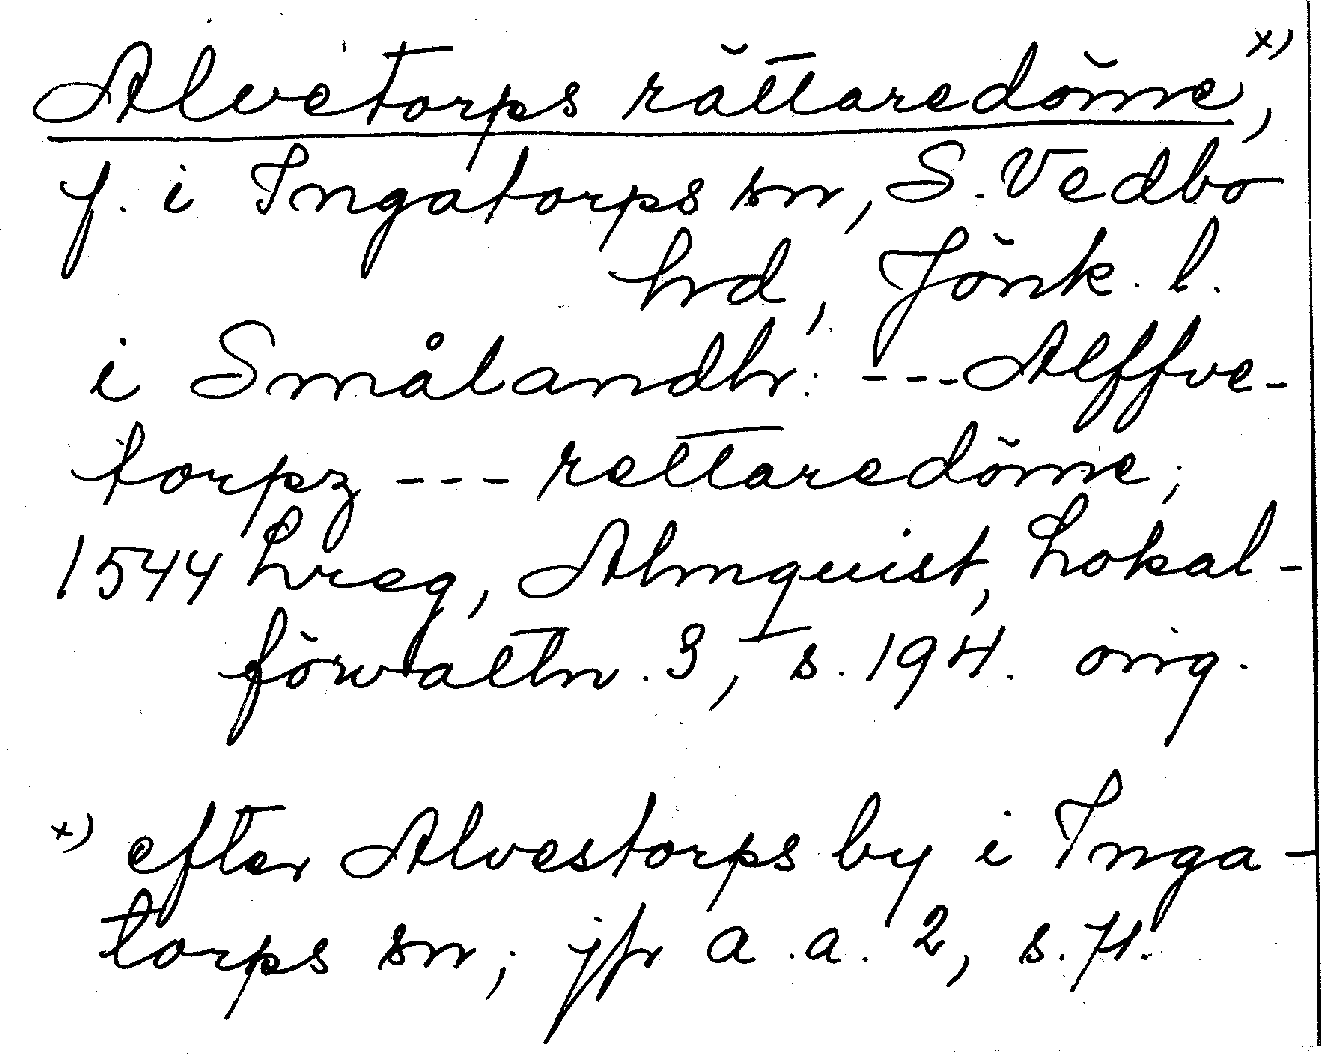 Alvetorps rättaredöme x),
f. i Ingatorps sn, S. Vedbo
hd, Jönk. l.
i Smålandhr: --- Alffve-
torpz --- rettaredöme;
1544 Lreg, Almquist, Lokal-
förvaltn. 3, s. 194. orig.
x) efter Alvestorps by i Inga-
torps sn; jfr a.a. 2, s. 71.